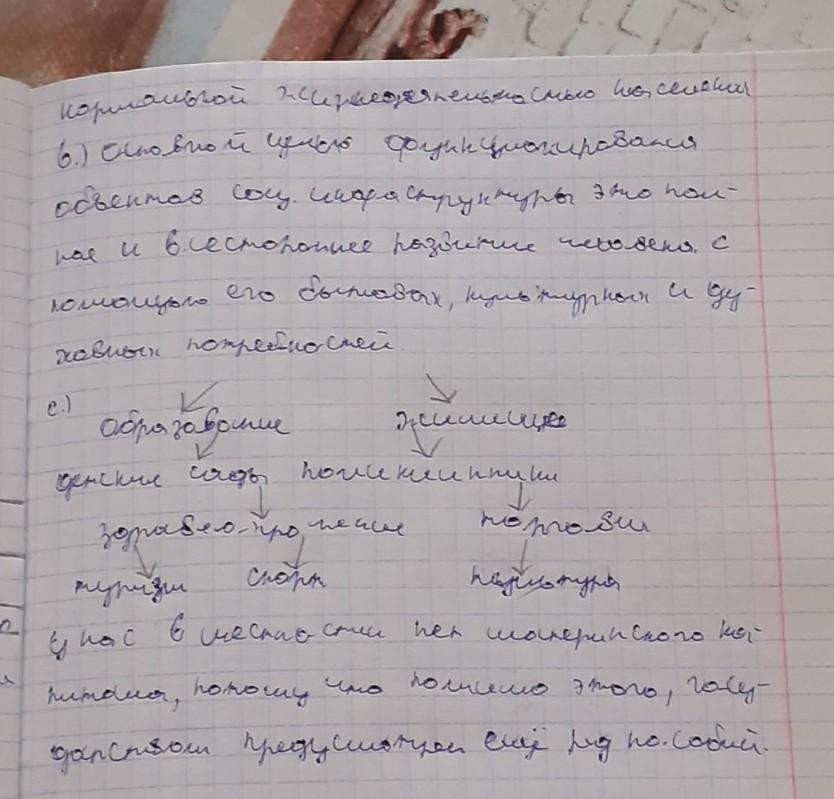 нормальной жизнедеятельностью населения
в.) Основной целью функционирования
объектов соц. инфраструктуры это пол-
ное и всестороннее развитие человека с
помощью его бытовых, культурных и ду-
ховных потребностей.
с.)
образование жилище
детские сады поликлиники
здравео-хронение торговля
туризм спорт культура
у нас в местности нет материнского ка-
питала, потому что помимо этого, госу-
дарством предусмотрен ещё ряд пособий.